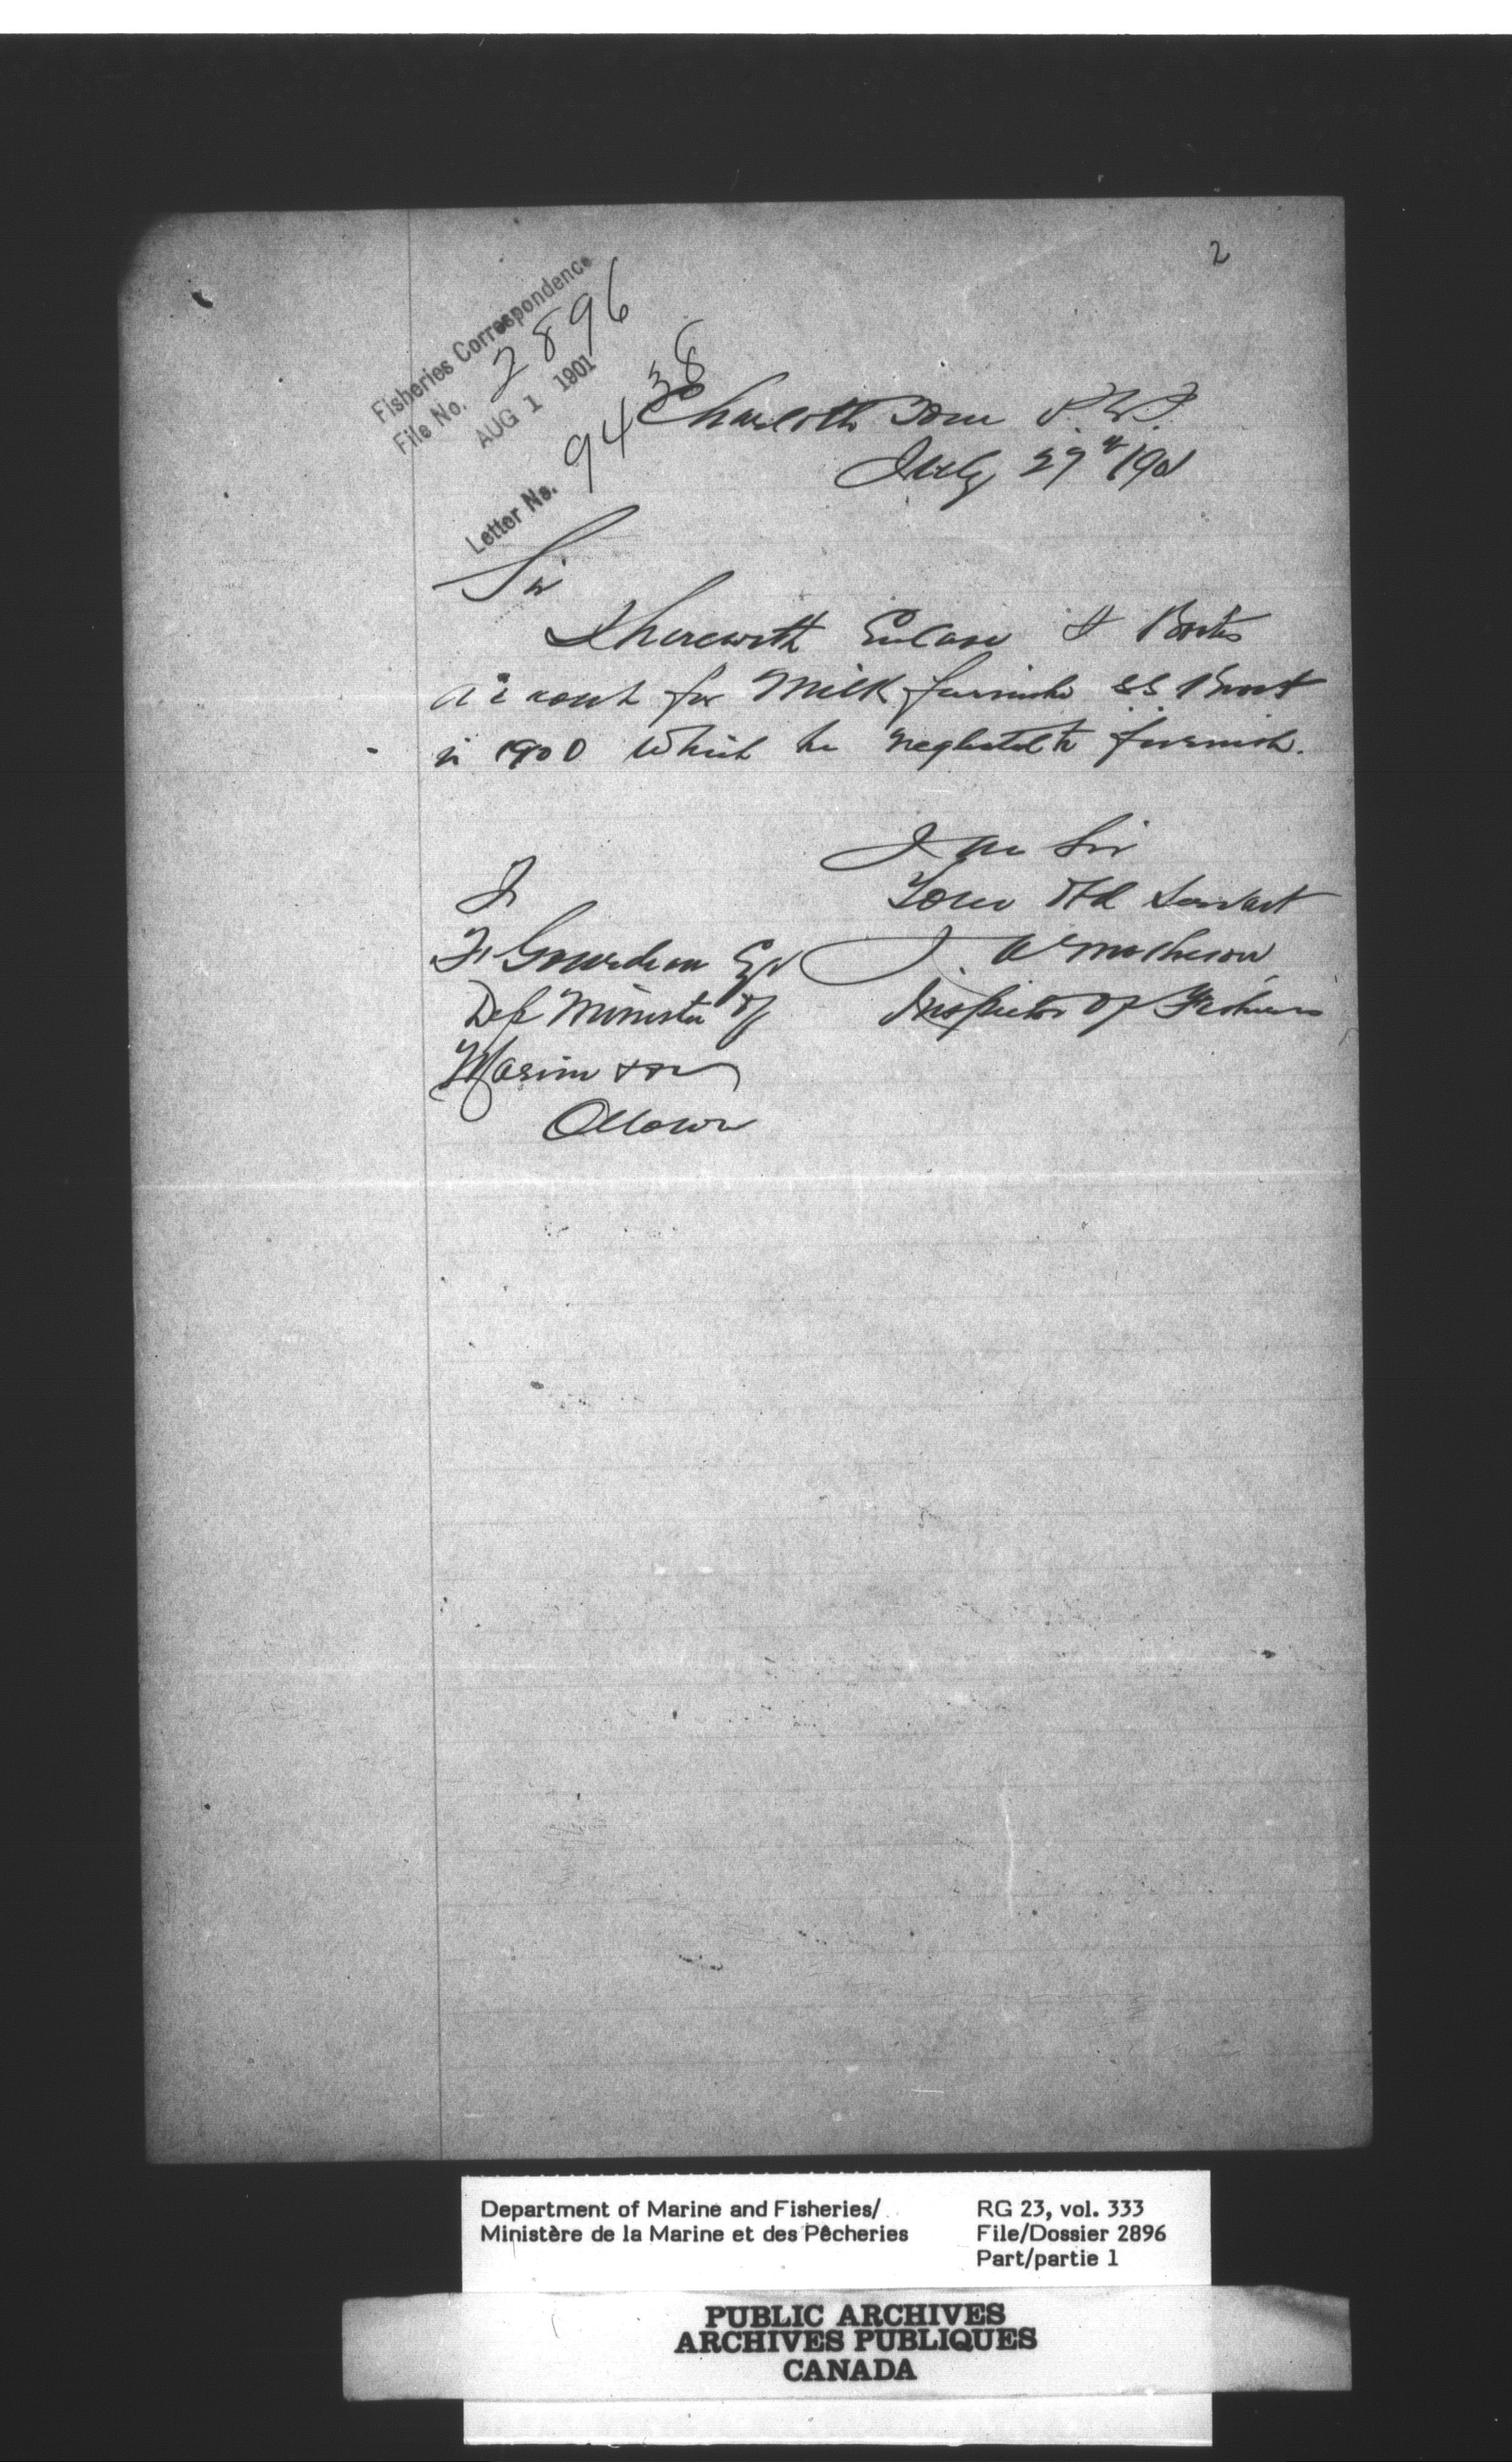 2
Fisheries Correspondence
File No. 2896
AUG 1 1901
Letter No. 9438
Charlotte Town P.E.I.
July 29th 1901
Sir
I herewith Enclose
account for Milk furnished SS
in 1900 which he neglected to furnish.
I am Sir
Your Obd Servant
J. A Matheson
Inspector of Fisheries
To
F Gourdeau Esq
Dep Minister of
Marine
Ottawa
Department of Marine and Fisheries/
Ministère de la Marine et des Pêcheries
RG 23, vol. 333
File/Dossier 2896
Part/partie 1
PUBLIC ARCHIVES
ARCHIVES PUBLIQUES
CANADA